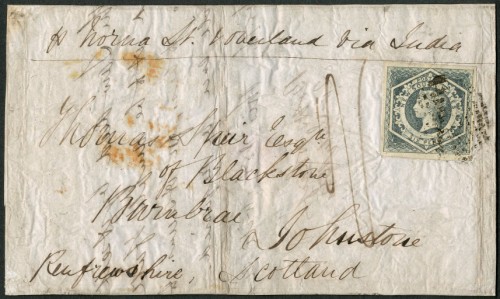 p Norna St. Overland via India
Thomas Speir Esqr
of Blackstone
Barnbrae
Johnstone
Renfrewshire, Scotland